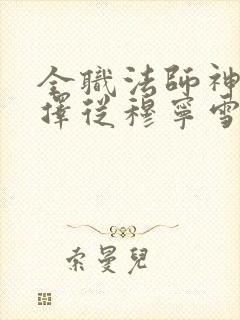 全職法師神
擇從穆寧雪
索曼兒